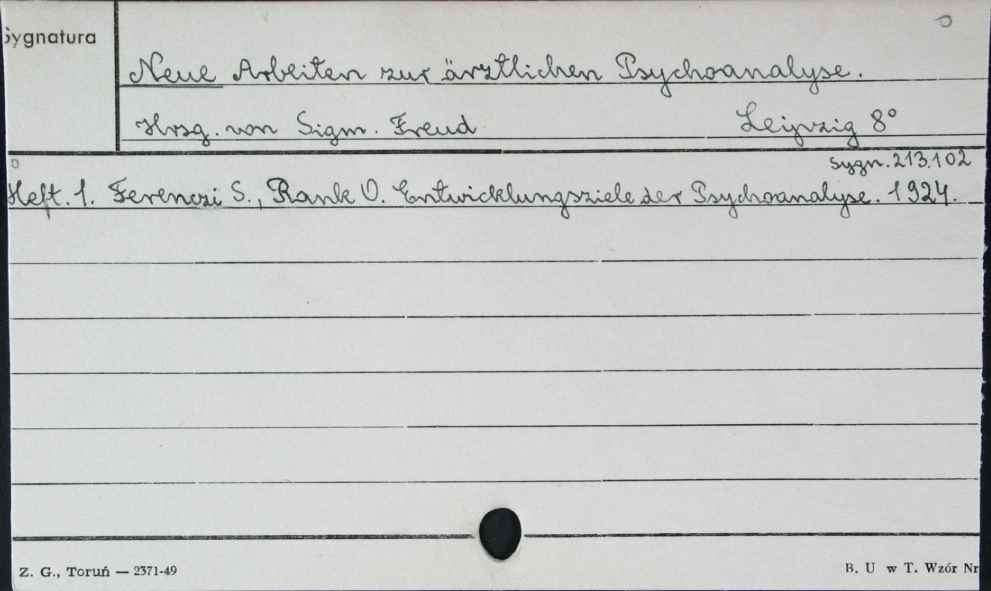 Sygnatura
Neue Arbeiten zur ärztlichen Psychoanalyse.
Hrsg. von Sigm. Freud Leipzig 8°
Sygn. 213.102
Heft. 1. Ferenczi S., Rank O. Entwicklungsziele der Psychoanalyse. 1924.
Z. G., Toruń — 2371-49 B. U w T. Wzór Nr